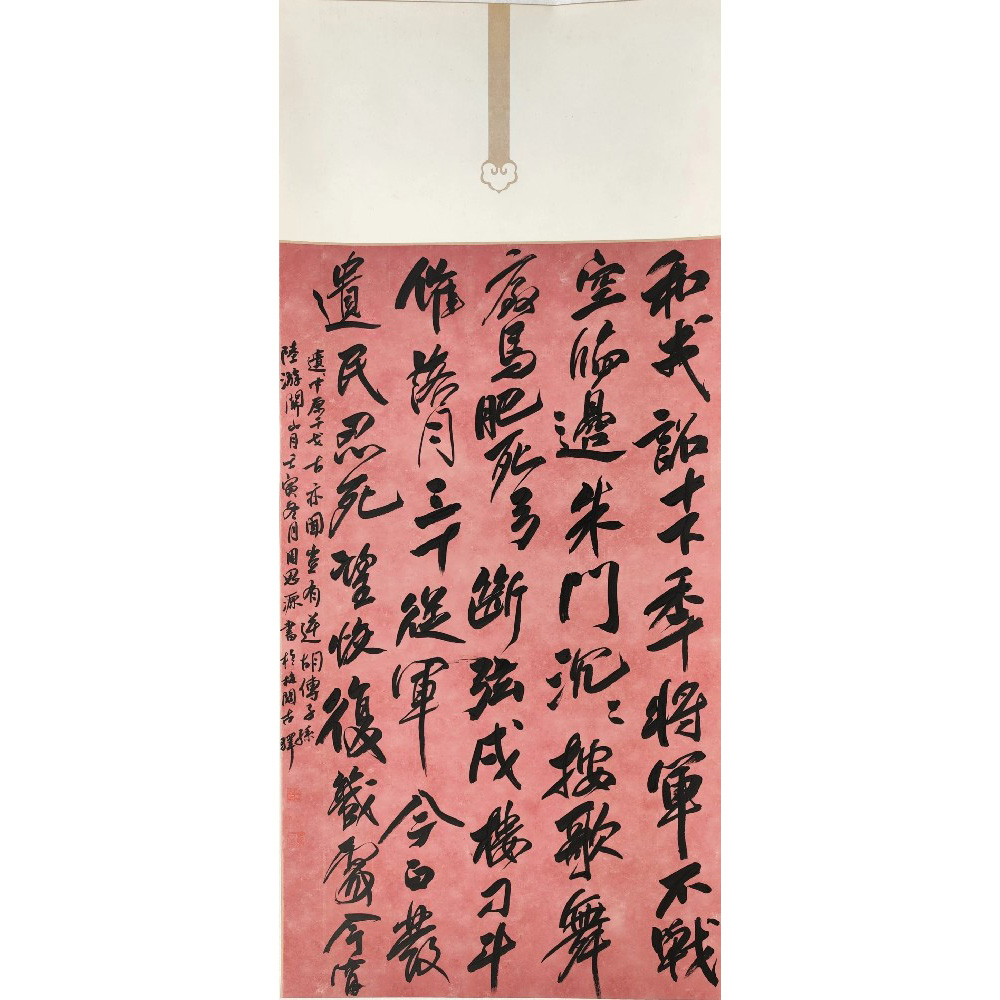 和戎詔十下秊將軍不戰
空臨邊朱門沉〻按歌舞
廄馬肥死弓斷弦戍樓刁斗
催落月三十從軍今白發
遺民忍死望恢復幾處今宵
遺中原干戈古亦聞豈有逆胡傳子孫
陸游關山月壬寅冬月周思源書於梅關古驛